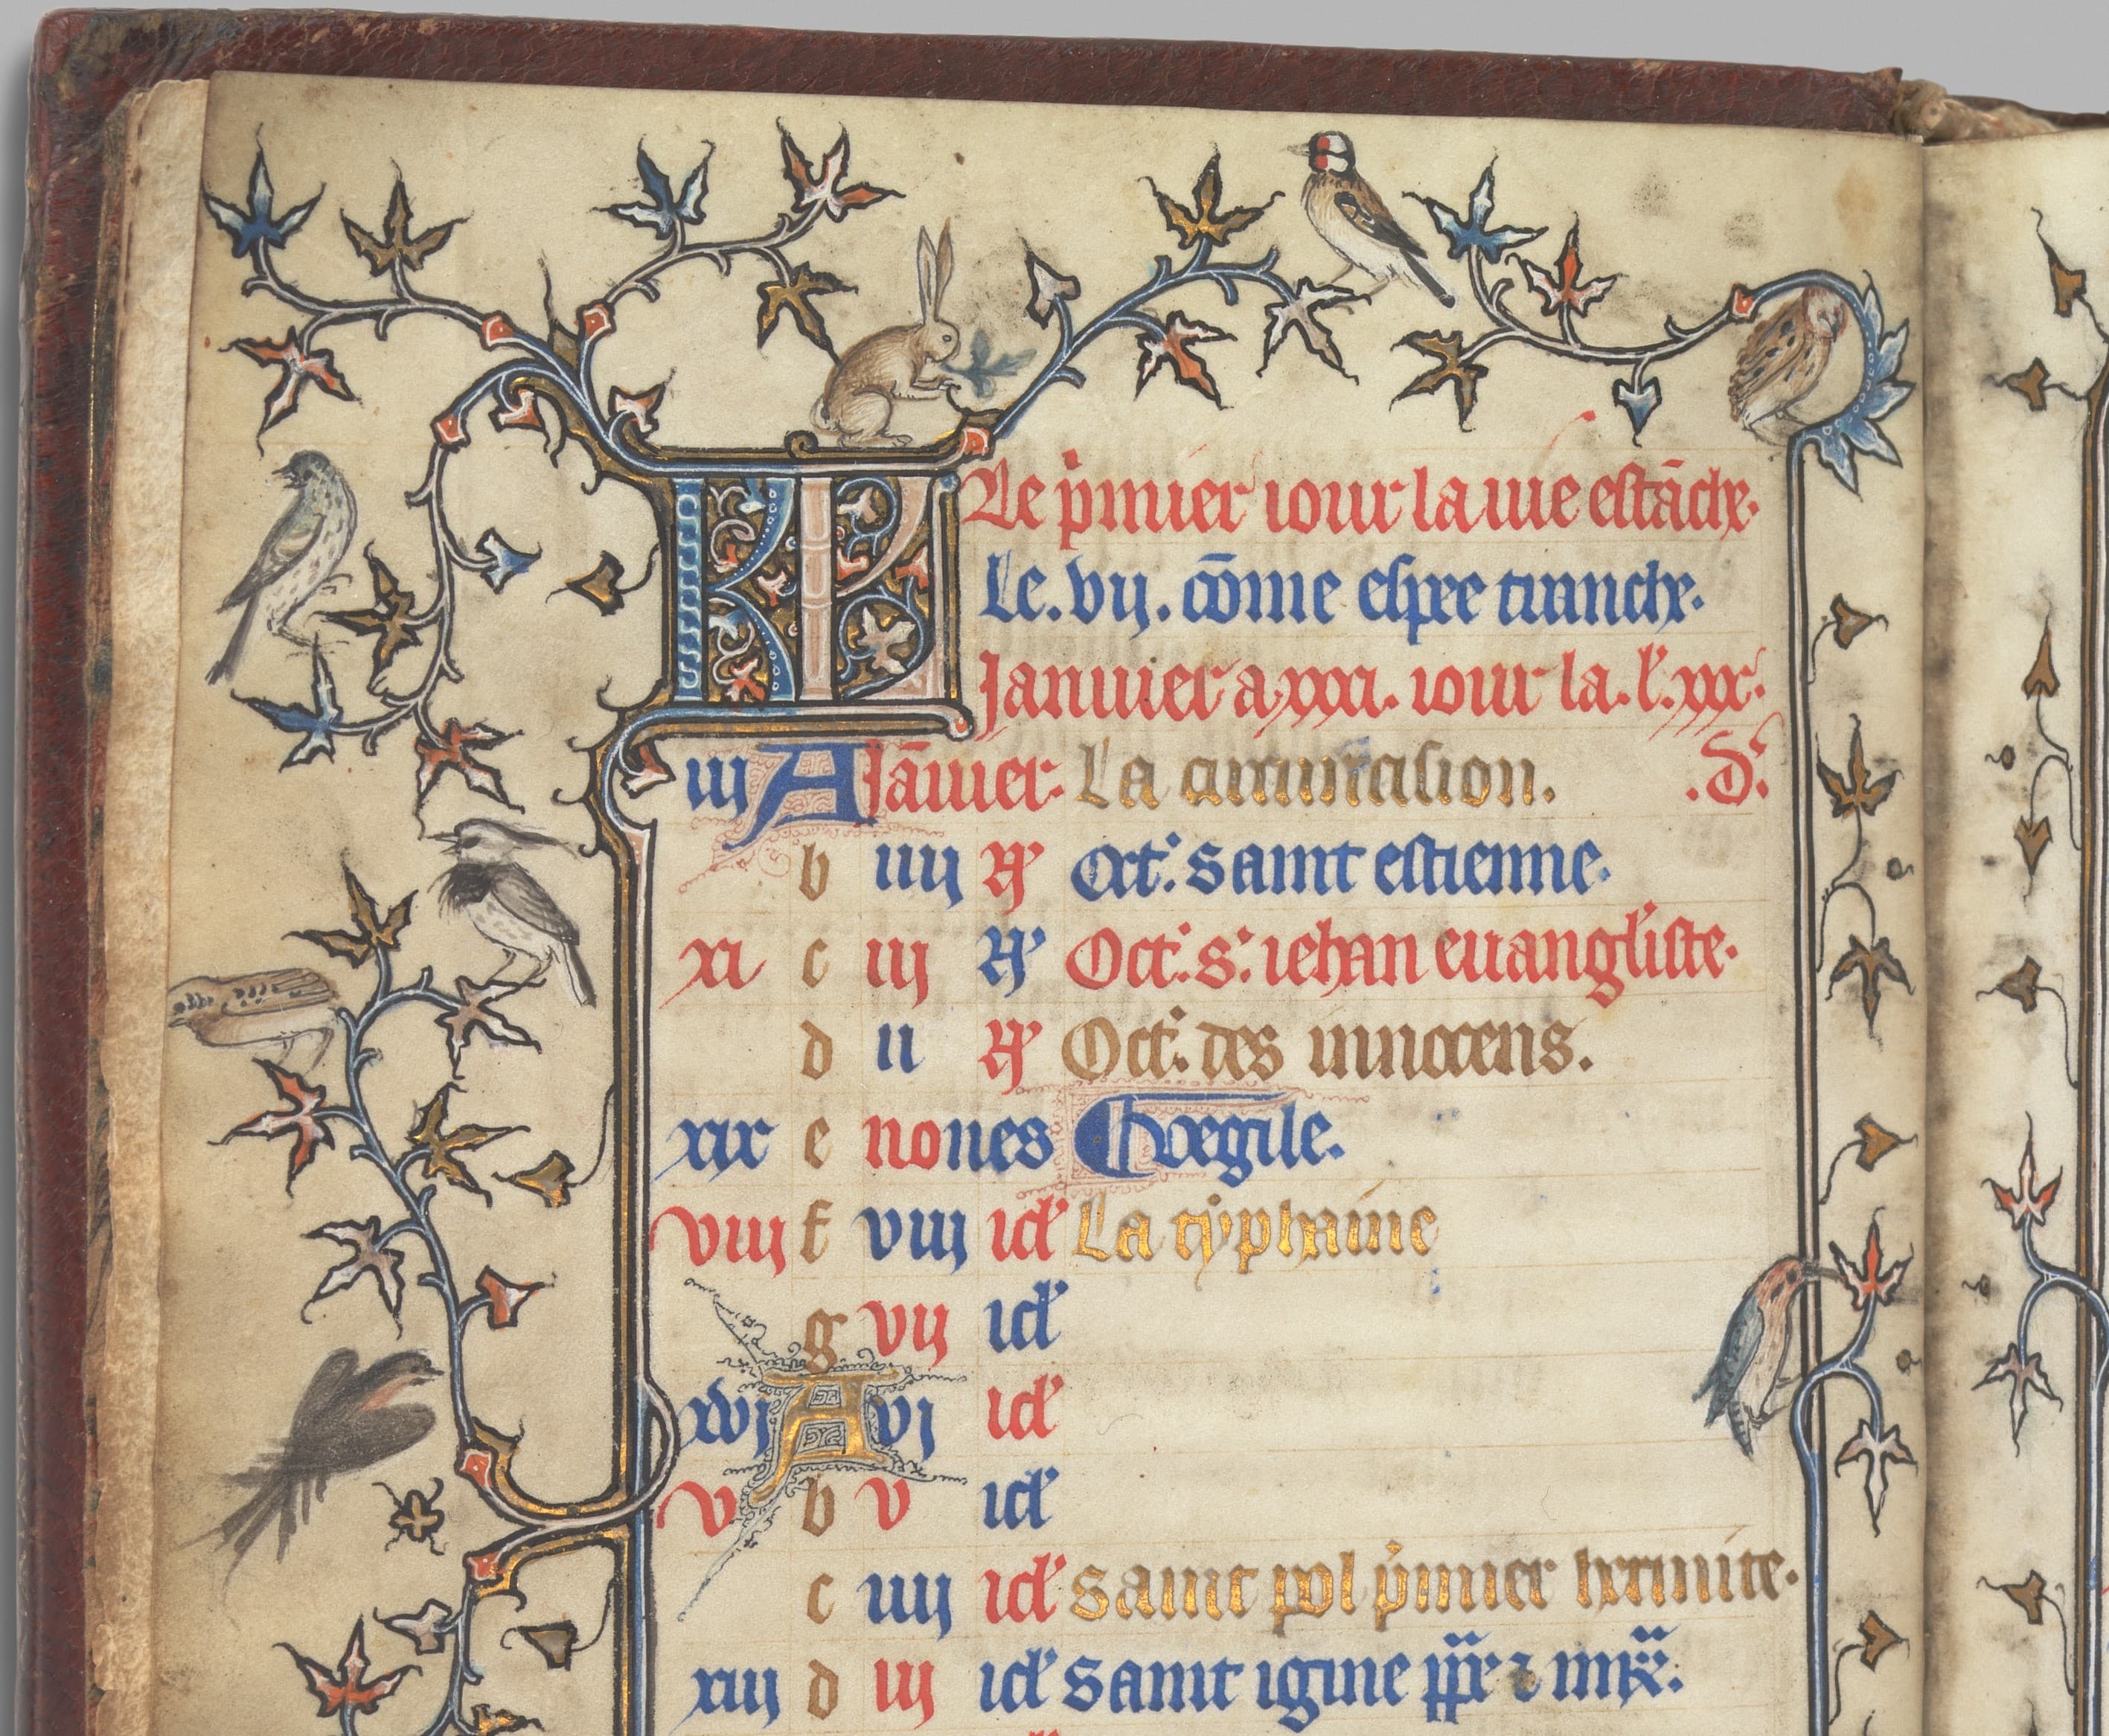 KL Le p̄mier iour la uie estāche.
Le. vij. cōme espee tranche.
Januier a xxxi. iour la. l'. xxx.
iij A Jāuier. La circuncision. .D'.
b iiij N' Oct'. saint estienne.
xi c iij N' Oct'. s'. iehan euangl'iste.
d ij N' Oct'. des innocens.
xix e nones
viij f viij id' La typhaine
g vij id'
xvj A vj id'
v b v id'
c iiij id' Saint pol p̄mier hermite.
xiij d iij id' Saint igine